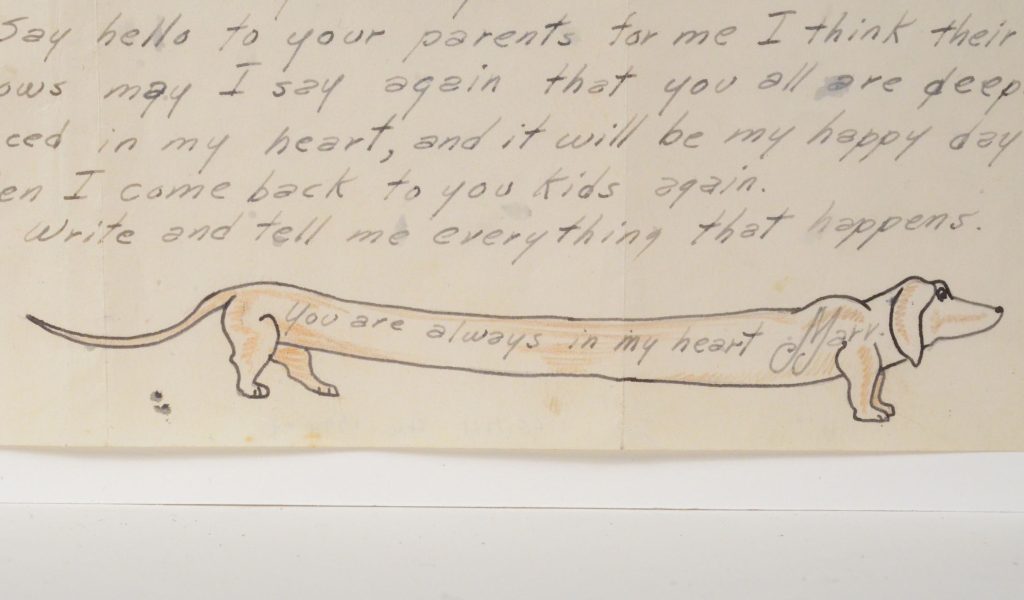 Say hello to your parents for me I think their
ows may I say again that you all are deep
ced in my heart, and it will be my happy day
en I come back to you kids again.
Write and tell me everything that happens.
You are always in my heart Marv.